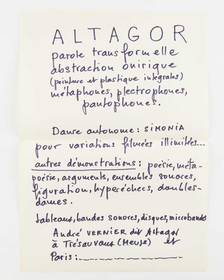 ALTAGOR
parole transformelle
abstraction onirique
(peinture et plastique intégrales)
métaphones, plectrophones,
pantophones.
Danse autonome: SIMONIA
pour variations filmées illimitées...
autres démonstrations: poésie, méta-
poésie, arguments, ensembles sonores,
figuration, hyperéchecs, doubles-
dames.
tableaux, bandes sonores, disques, microbandes
André VERNIER dit Altagor
à Trésauvaux (Meuse) et
Paris: